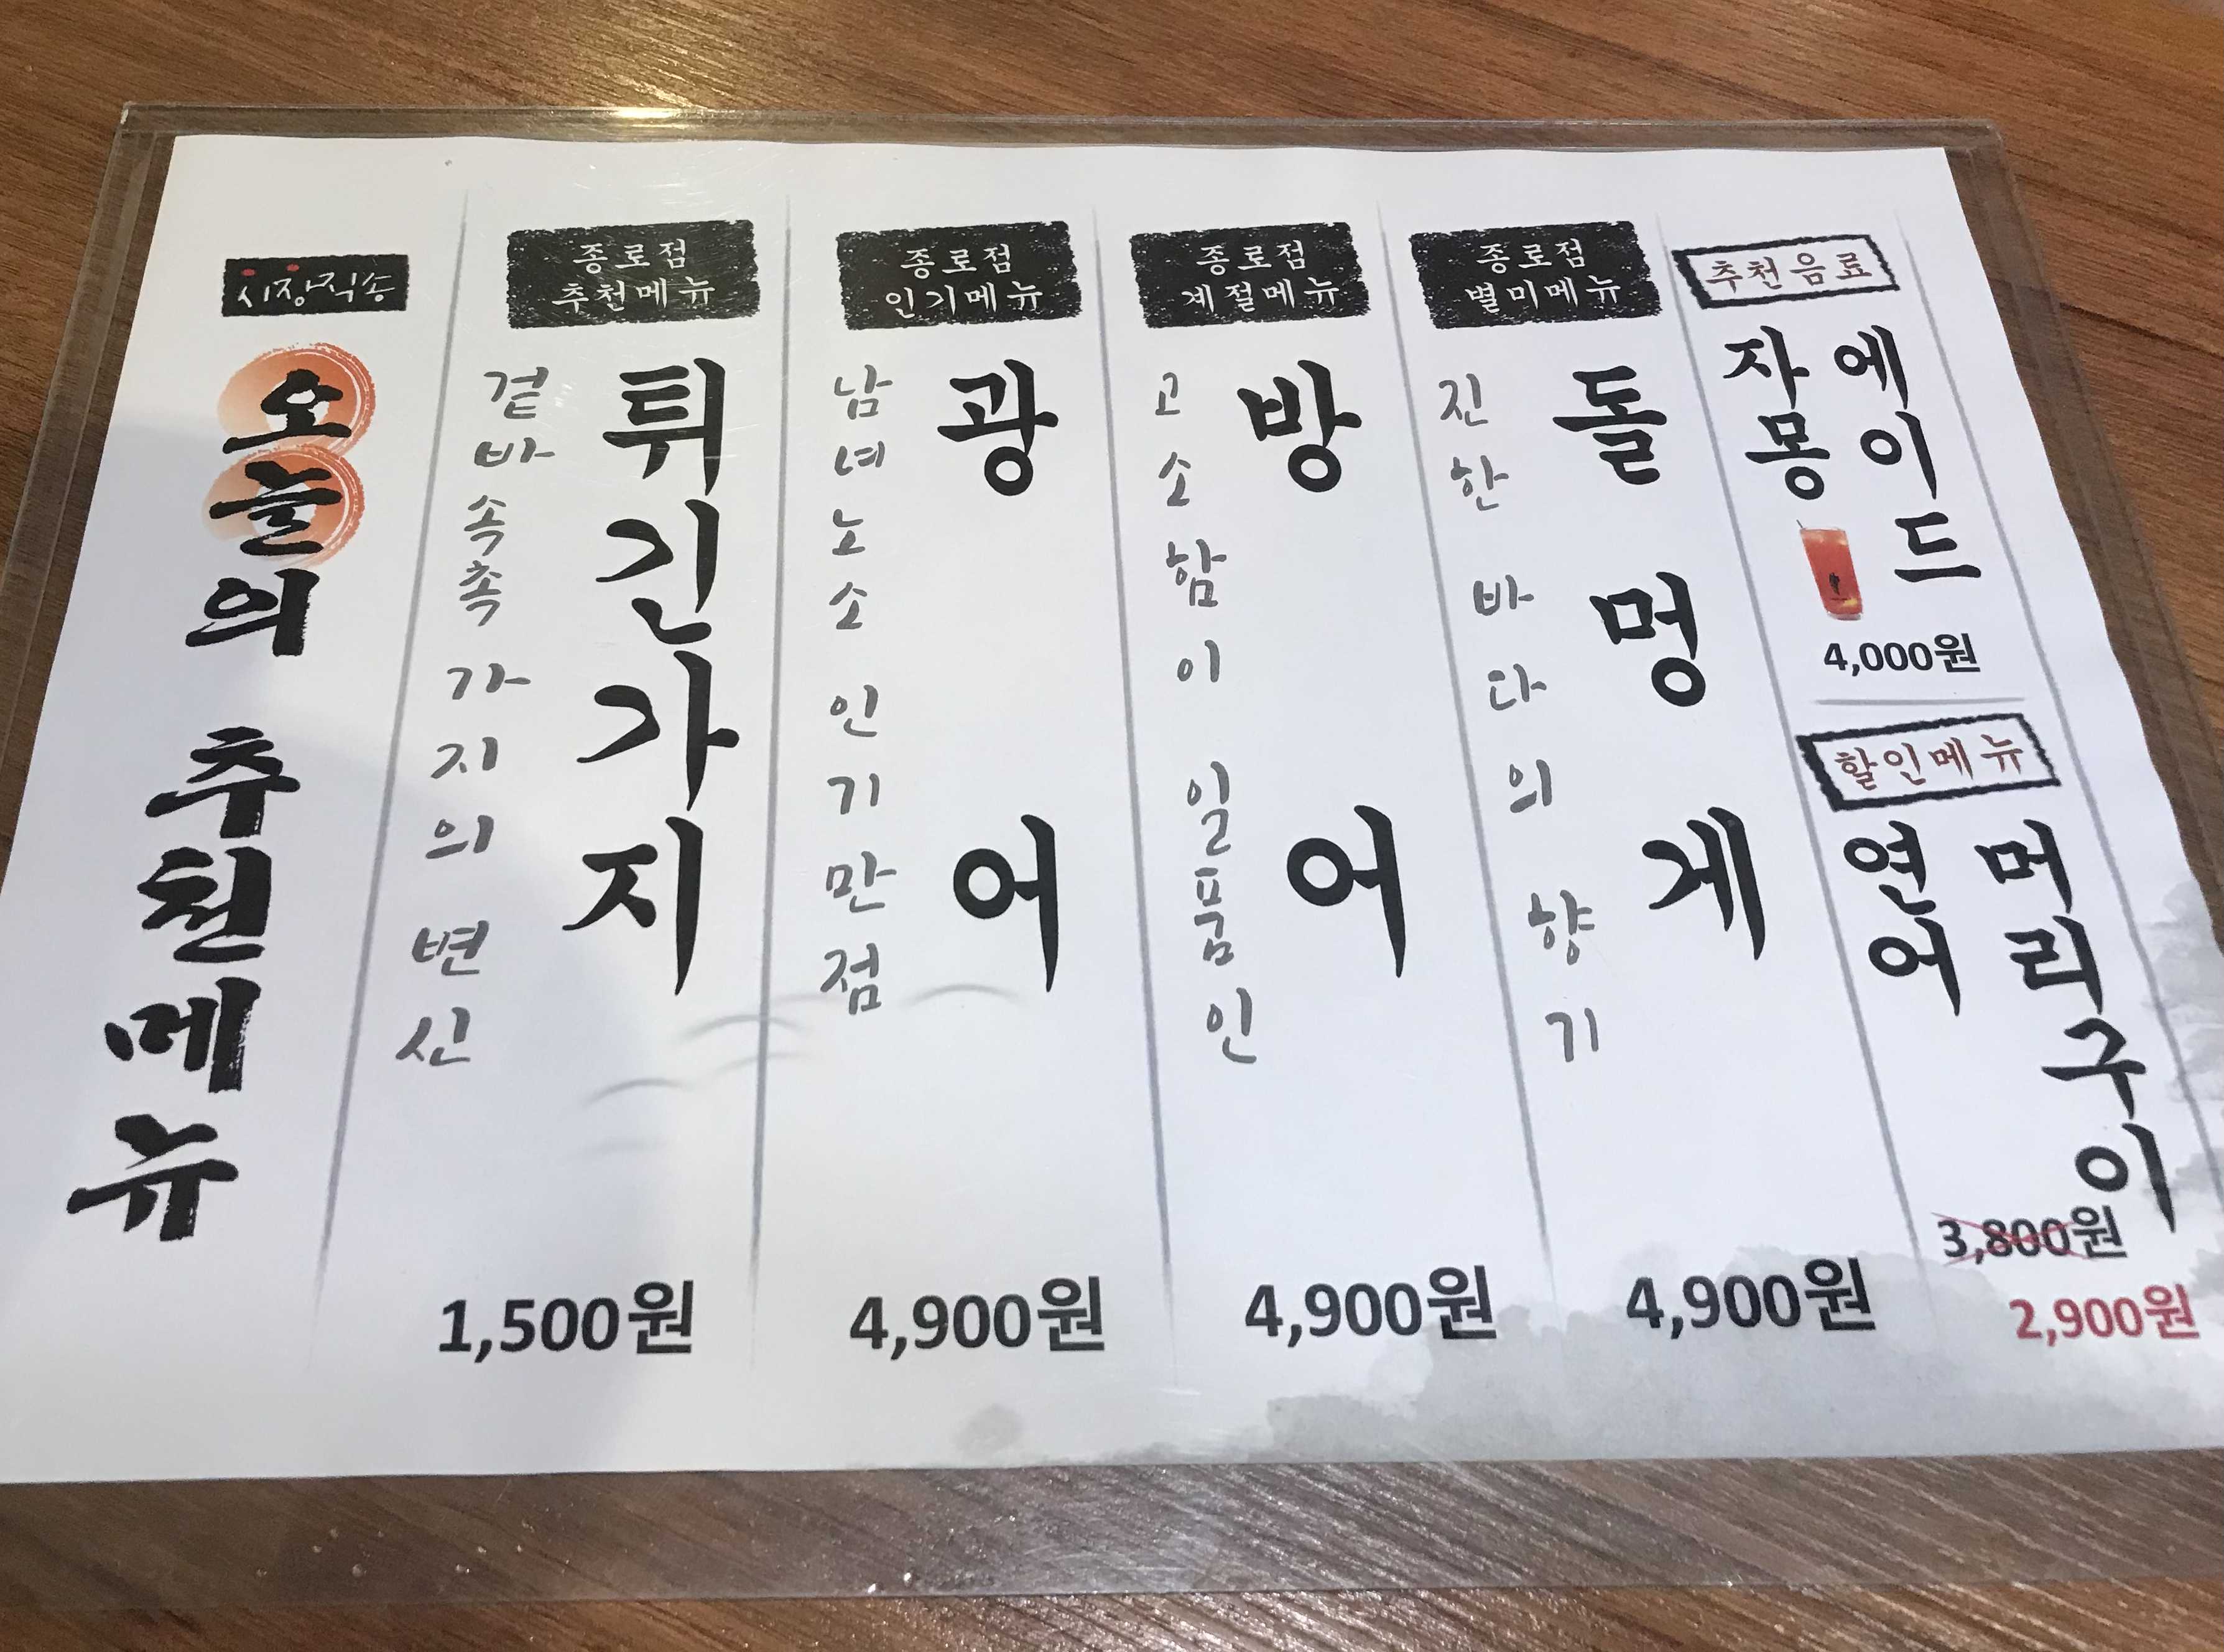 시장직송
오늘의 추천메뉴
종로점
추천메뉴
튀긴가지
겉바속촉 가지의 변신
1,500원
종로점
인기메뉴
광어
남녀노소 인기만점
4,900원
종로점
계절메뉴
방어
고소함이 일품인
4,900원
종로점
별미메뉴
돌멍게
진한 바다의 향기
4,900원
추천음료
자몽
에이드
4,000원
할인메뉴
연어
머리구이
3,800원
2,900원